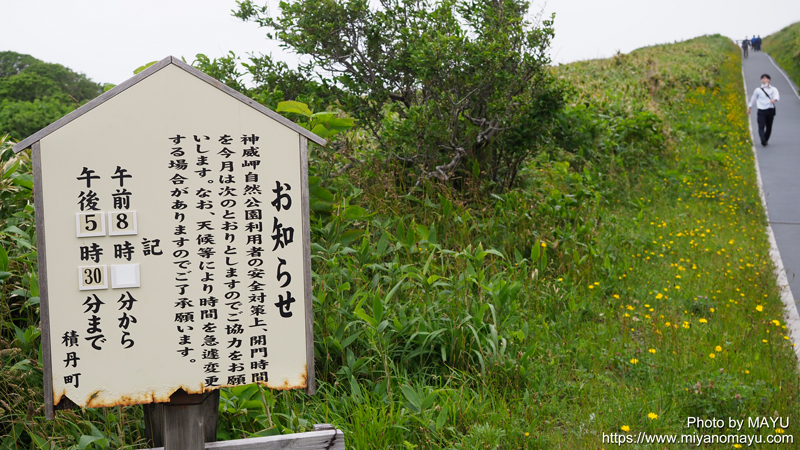 お知らせ
神威岬自然公園利用者の安全対策上、開門時間
を今月は次のとおりとしますのでご協力をお願
いします。なお、天候等により時間を急遽変更
する場合がありますのでご了承願います。
記
午前8時 分から
午後5時30分まで
積丹町
Photo by MAYU
https://www.miyanomayu.com/